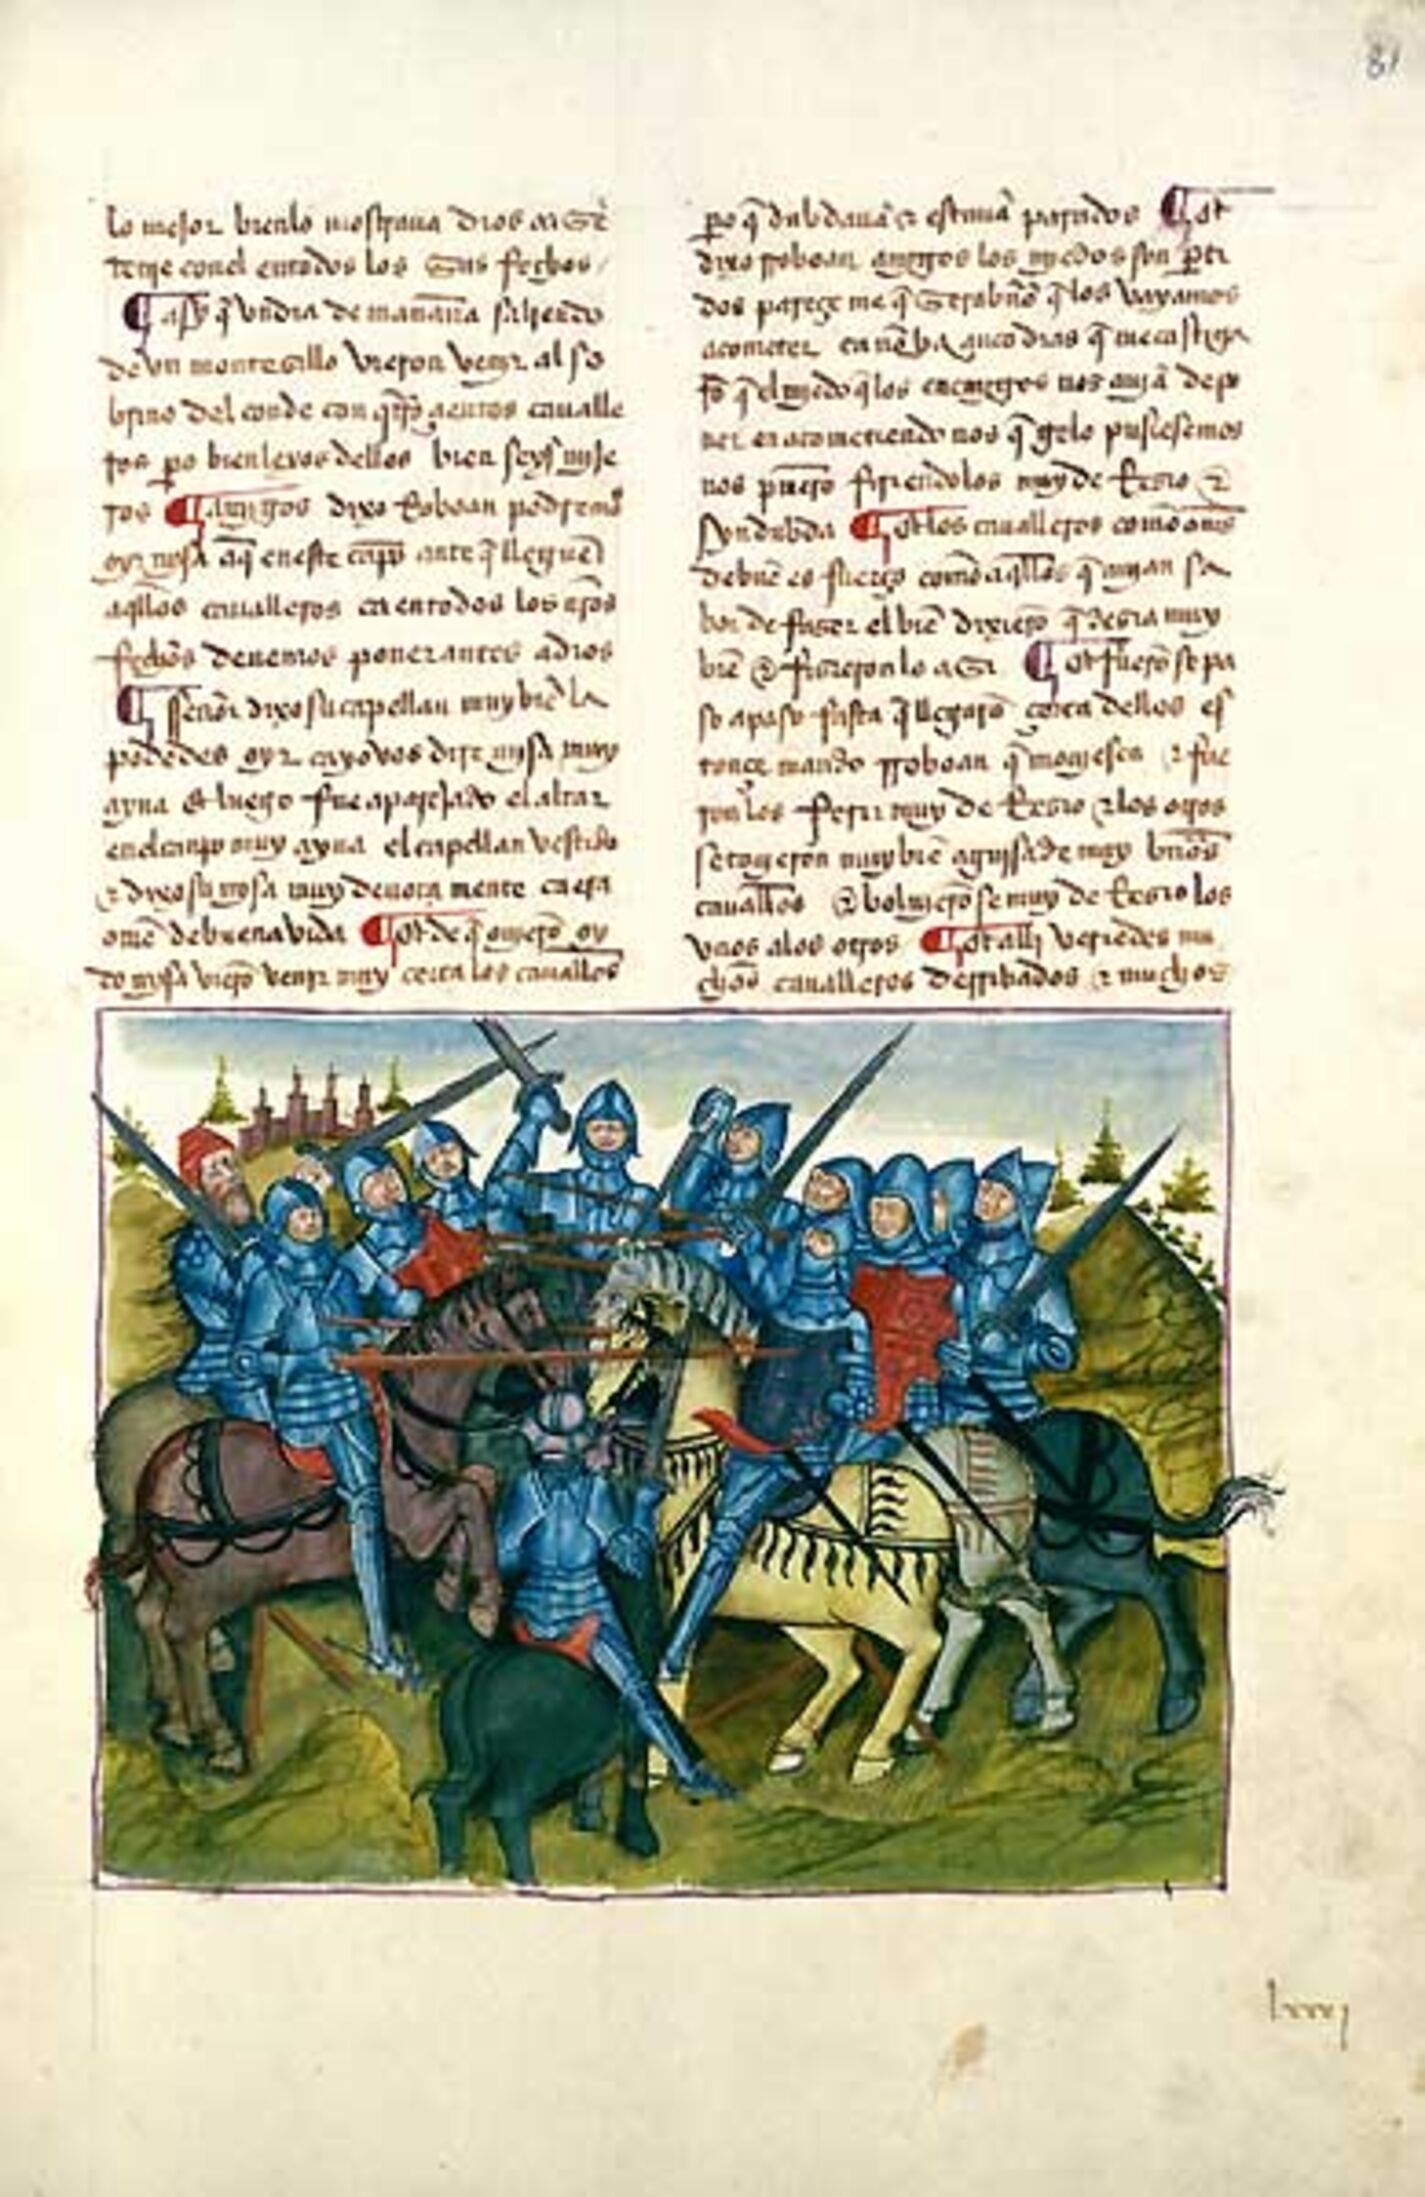 81
lo mejor bien lo mostraua dios a este
tenje con el en todos los sus fechos
¶ asy q̃ vn dia de mañana saliendo
de vn montezillo vieron venjr al so
brino del conde con q̃troçientos caualle
ros po bien leuos dellos bien seys mijе
ros ¶ amigos dixo Roboan podremos
oyr mjsa aq̃ en este canpo ante q̃ lleguen
aq̃llos caualleros ca en todos los nros
fechos deuemos poner antes a dios
¶ señor dixo su capellan muy biẽ la
podedes oyr ca yo vos dire mjsa muy
ayna et luego fue aparejado el altar
en el canpo muy ayna el capellan vestido
& dixo su mjsa muy deuota mente ca era
ome de buena vida ¶ Et de q̃ oujerõ oy
do mjsa vierõ venjr muy cerca los cauallos
po q̃ dubdauã & estauã parados ¶ Et
dixo rroboan amigos los mjedos son parti
dos pareçe me q̃ sera bueno q̃ los vayamos
acometer ca
q̃ el mjedo q̃ los enemjgos nos aujã de po
ner en acometiendo nos q̃ gelo pusiesemos
nos primero firiendolos muy de rrezio &
syn dubda ¶ Et los caualleros como omes
de buẽ esfuerço como aq̃llos q̃ aujan sa
bor de fazer el biẽ dixierõ q̃ dezia muy
biẽ & fizieron lo asi ¶ Et fuerõ se pa
so a paso fasta q̃ llegarõ çerca dellos es
tonçe mando rroboan q̃ moujesen & fue
ron los ferir muy de rrezio & los otros
se touieron muy biẽ a guisa de muy buenos
cauallos & boluierõ se muy de rrezio los
vnos a los otros ¶ Et alli veriedes mu
chos caualleros derribados & muchos
lxxxj